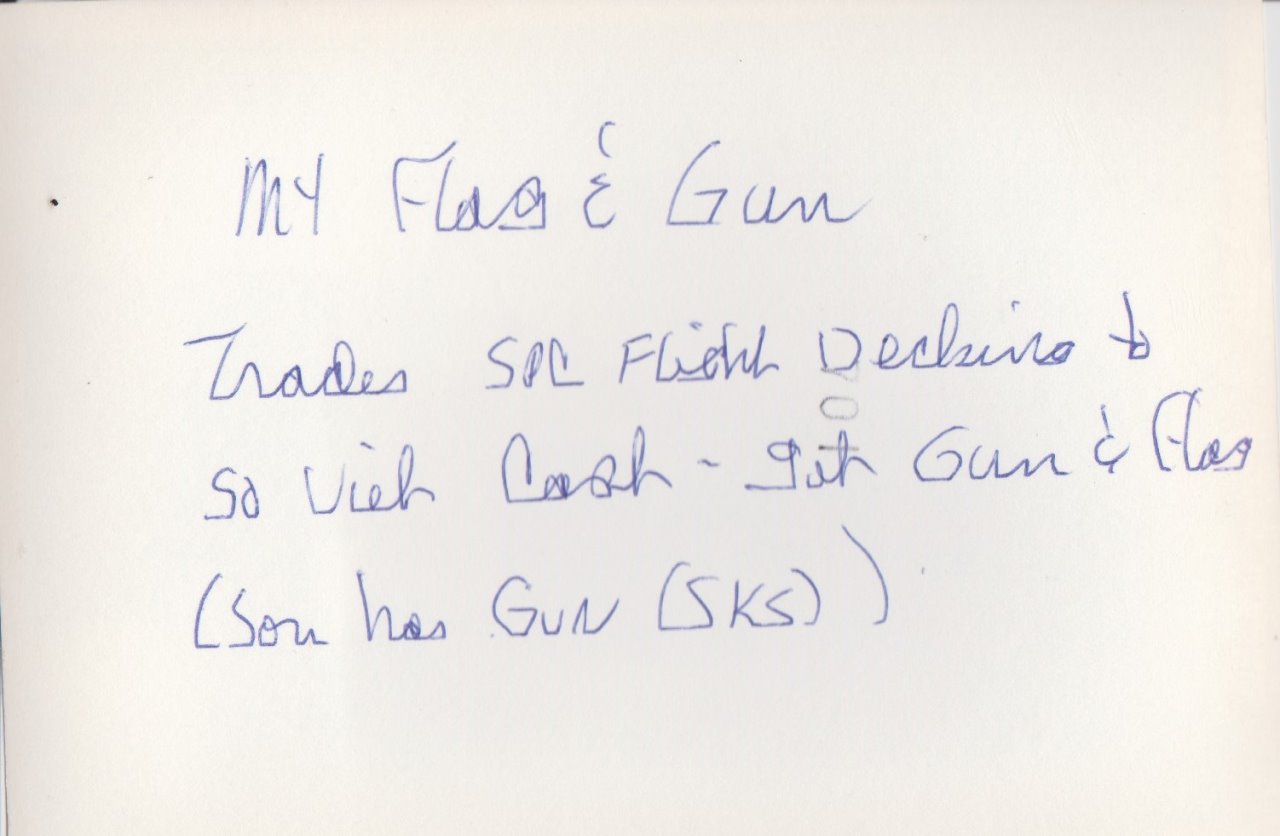 MY Flag & Gun
Trades SPC Flight Decking to
So Viet Cash - got Gun & Flag
(Son has GUN (SKS))